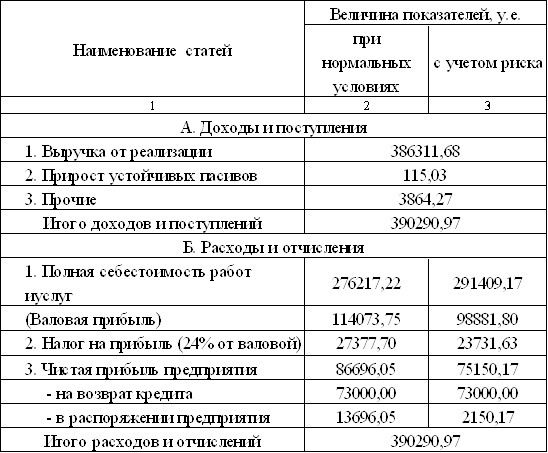 Наименование статей
Величина показателей, у.е.
при
нормальных
условиях
с учетом риска
1
2
3
А. Доходы и поступления
1. Выручка от реализации
386311,68
2. Прирост устойчивых пасивов
115,03
3. Прочие
3864,27
Итого доходов и поступлений
390290,97
Б. Расходы и отчисления
1. Полная себестоимость работ
иуслуг
276217,22
291409,17
(Валовая прибыль)
114073,75
98881,80
2. Налог на прибыль (24% от валовой)
27377,70
23731,63
3. Чистая прибыль предприятия
86696,05
75150,17
- на возврат кредита
73000,00
73000,00
- в распоряжении предприятия
13696,05
2150,17
Итого расходов и отчислений
390290,97